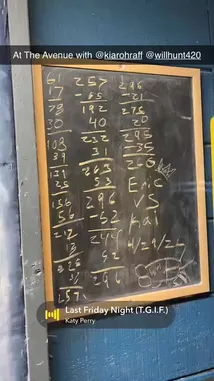 At The Avenue with @kiarohraff @willhunt420
61
17
78
30
108
131
25
156
56
212
13
257
257
-65
192
40
232
31
263
33
296
-52
244
52
296
296
-21
275
20
295
-35
260
Eric
VS
Kai
Last Friday Night (T.G.I.F.)
Katy Perry